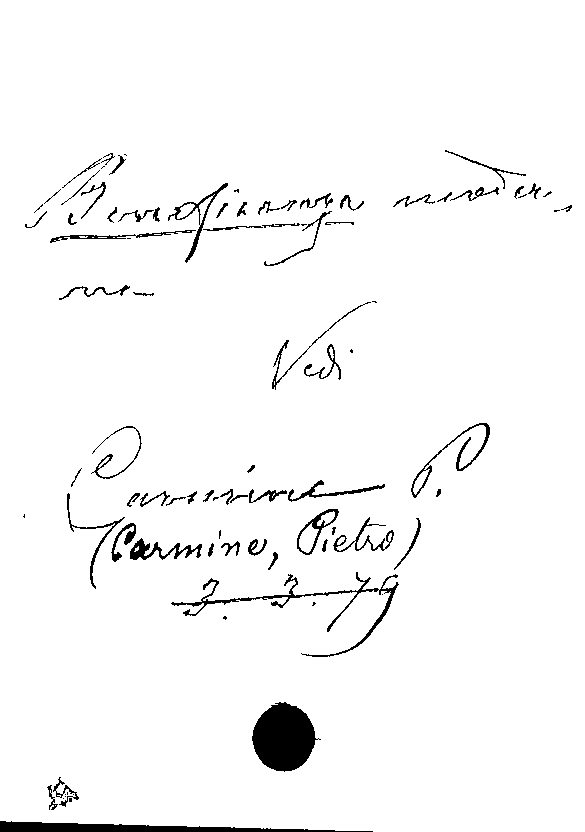 Beneficenza moder-
na
Vedi
Carmine P.
(Carmine, Pietro)
3. 3. 79